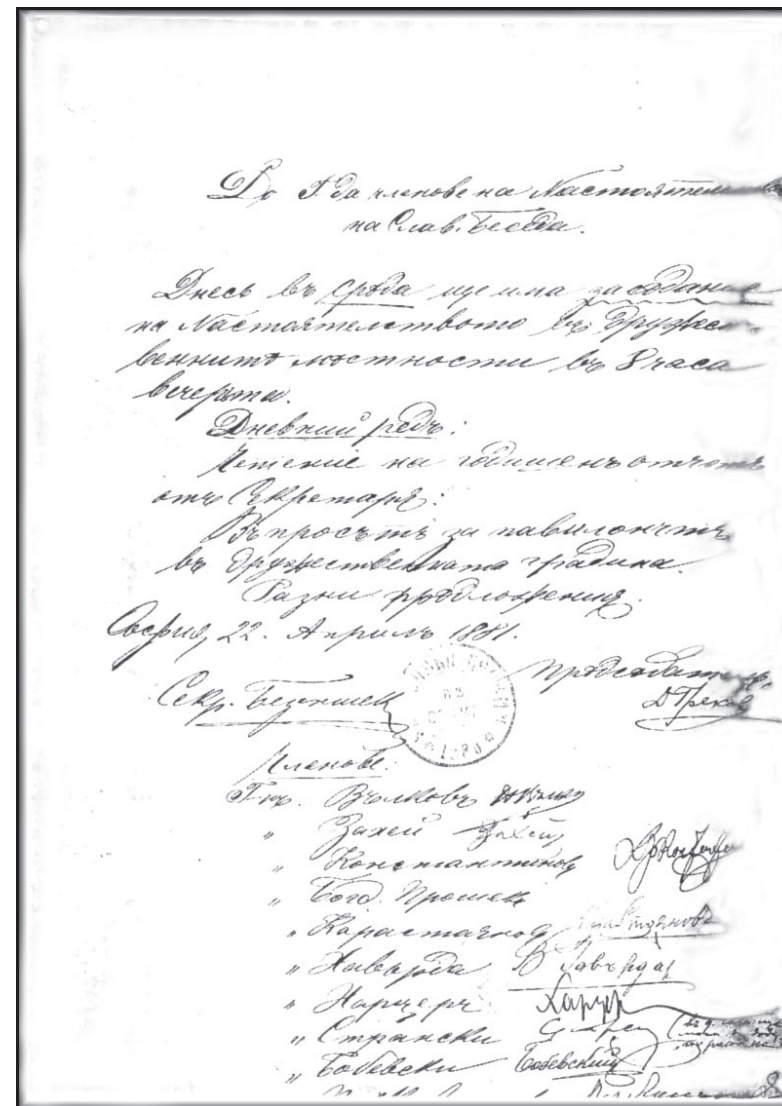 До Г. да членове на Настоятелство
на Слав. Беседа.
Днесь въ срѣда ще има заседание
на Настоятелството въ друже-
ственнитѣ мѣстности въ 8 часа
вечерта.
Дневний редъ:
Четение на годишенъ отчетъ
отъ Секретаря:
Въпросътъ за павилонътъ
въ дружественната градина.
Разни прѣдложения.
София, 22. Априлъ 1881.
Прѣдседатель,
Секр. Безеншек
Д Греков
Членове:
Г-нъ. Вълковъ
" Захей Захей
" Константиновъ
" Богд. Прошекъ
" Карастояновъ
" Хаверда
" Харцеръ
" Странски
" Бобевски Бобевский